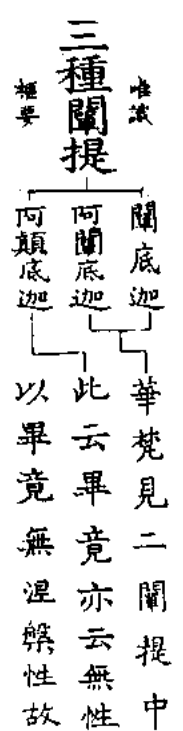 三種闡提
唯識
樞要
闡底迦
阿闡底迦
阿顛底迦
華梵見二闡提中
此云畢竟亦云無性
以畢竟無涅槃性故